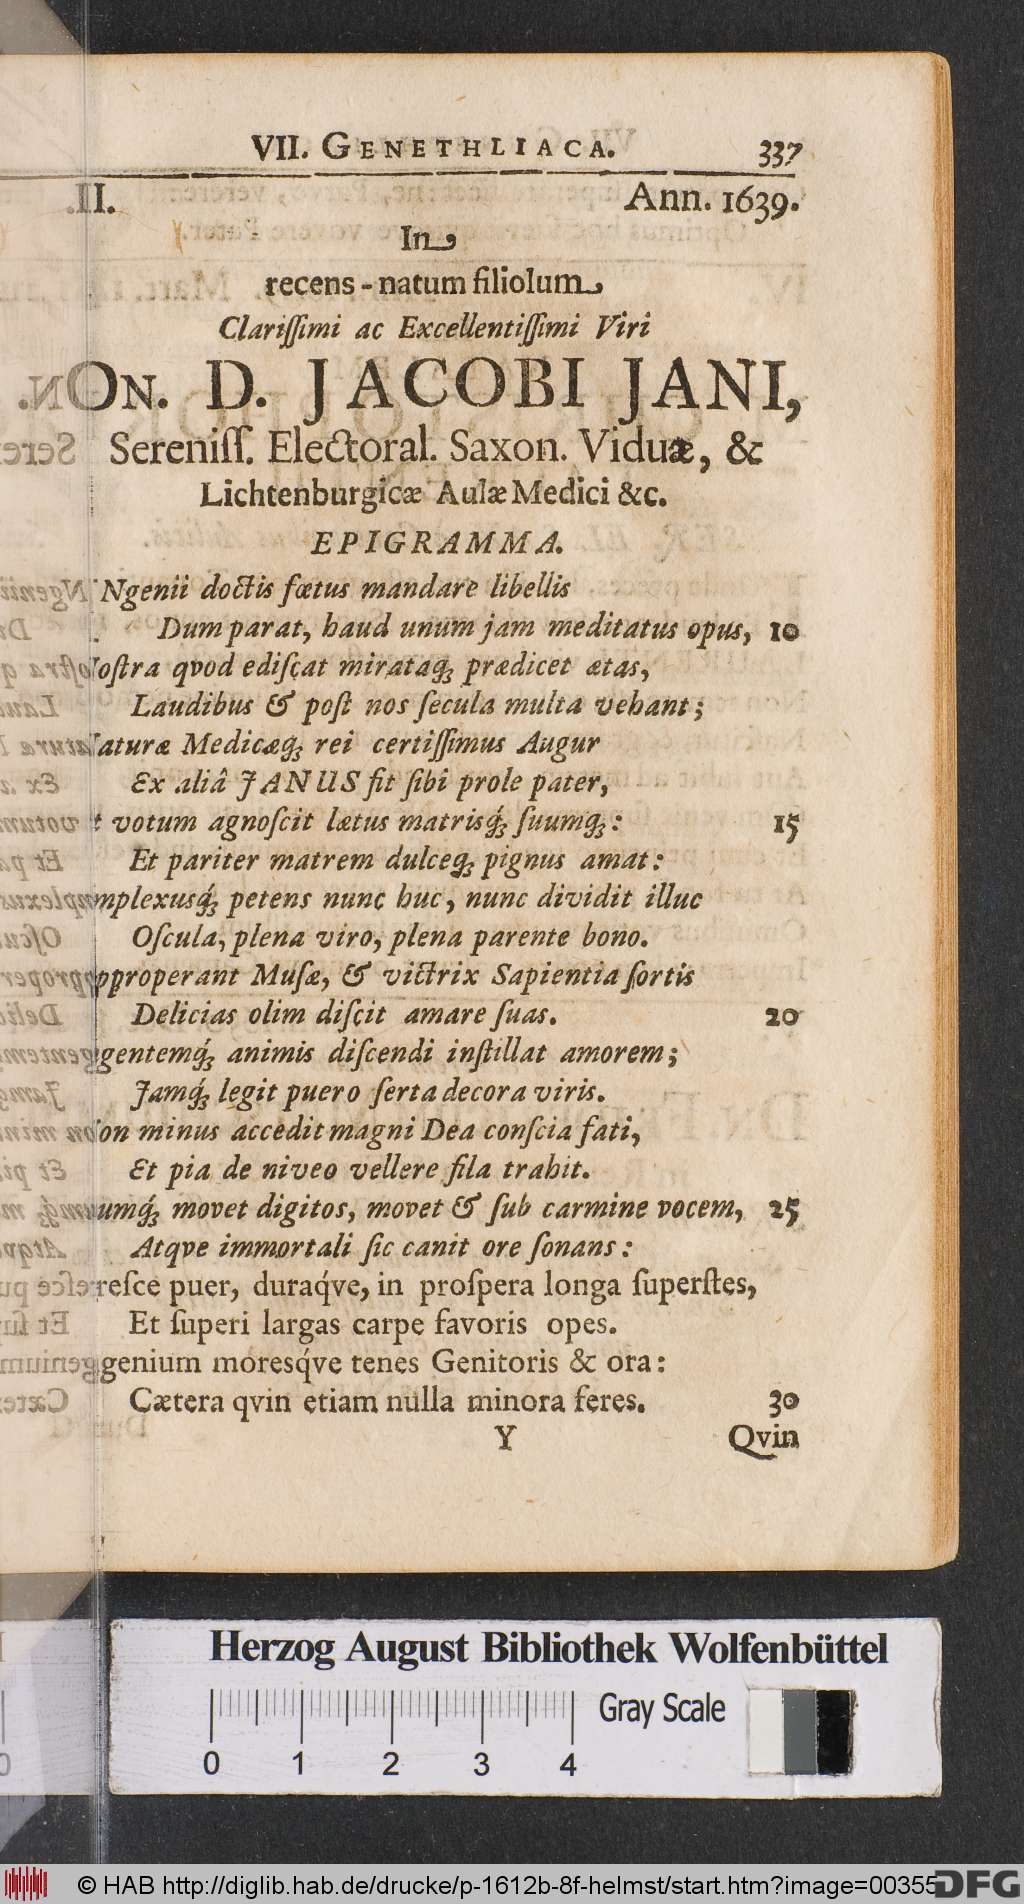 VII. GENETHLIACA. 337
II. Ann. 1639.
In
recens-natum filiolum
Clariſſimi ac Excellentiſſimi Viri
ON. D. JACOBI JANI,
Sereniſſ. Electoral. Saxon. Viduæ, &
Lichtenburgicæ Aulæ Medici &c.
EPIGRAMMA.
Ngenii doctis fœtus mandare libellis
Dum parat, haud unum jam meditatus opus, 10
oſtra qvod ediſcat mirataq́; prædicet ætas,
Laudibus & poſt nos ſecula multa vehant;
aturæ Medicæq́; rei certiſſimus Augur
Ex aliâ JANUS fit ſibi prole pater,
t votum agnoſcit lætus matrisq́; ſuumq́;: 15
Et pariter matrem dulceq́; pignus amat:
mplexusq́; petens nunc huc, nunc dividit illuc
Oſcula, plena viro, plena parente bono.
pproperant Muſæ, & victrix Sapientia ſortis
Delicias olim diſcit amare ſuas. 20
gentemq́; animis diſcendi inſtillat amorem;
Jamq́; legit puero ſerta decora viris.
on minus accedit magni Dea conſcia fati,
Et pia de niveo vellere fila trahit.
umq́; movet digitos, movet & ſub carmine vocem, 25
Atqve immortali ſic canit ore ſonans:
reſce puer, duraq́ve, in proſpera longa ſuperſtes,
Et ſuperi largas carpe favoris opes.
genium moresq́ve tenes Genitoris & ora:
Cætera qvin etiam nulla minora feres. 30
Y Qvin
Herzog August Bibliothek Wolfenbüttel
Gray Scale
0 1 2 3 4
© HAB http://diglib.hab.de/drucke/p-1612b-8f-helmst/start.htm?image=00355
DFG